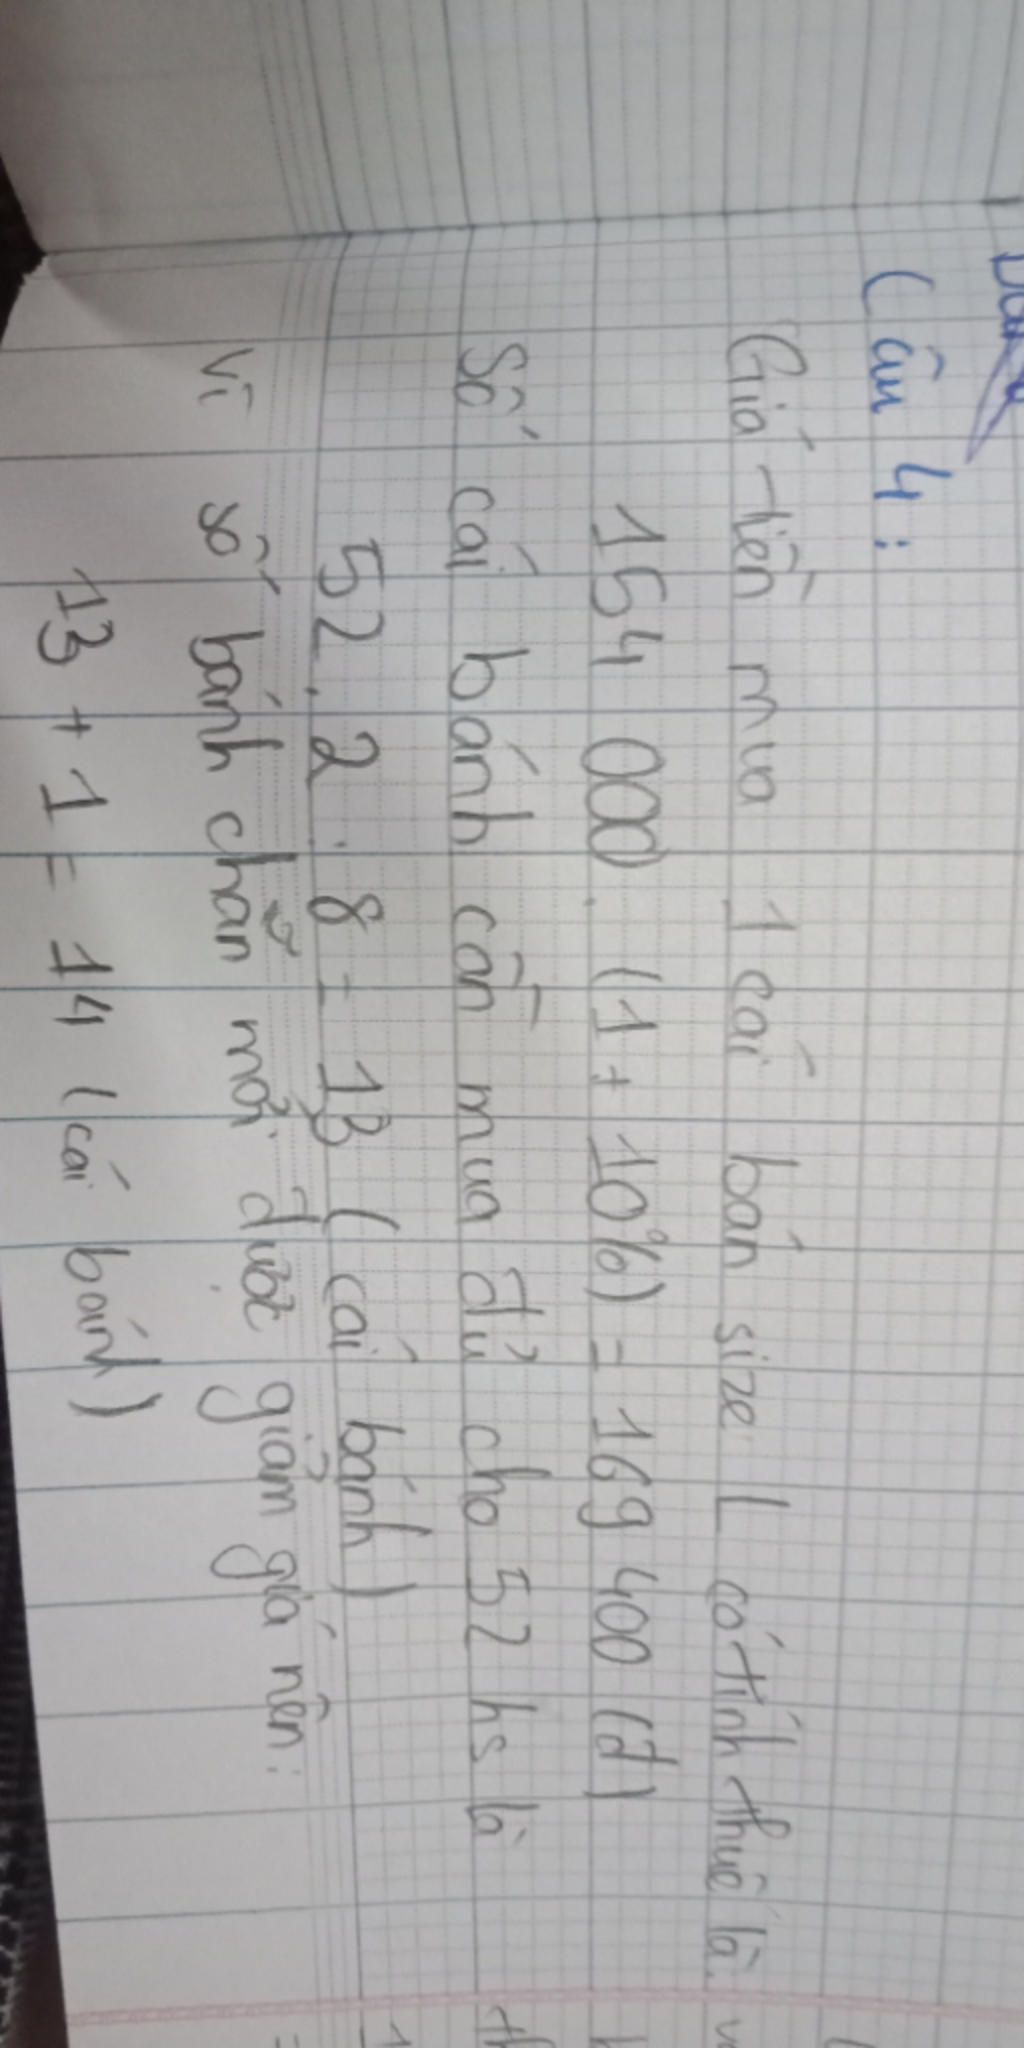 Câu 4:
Giá tiền mua 1 cái bán size L có tính thuê là
154 000 . (1 + 10%) = 169 400 (đ)
Số cái bánh cần mua đủ cho 52 hs là
52 . 2 : 8 = 13 (cái bánh)
Vì số bánh chẵn mới được giảm giá nên:
13 + 1 = 14 (cái bánh)